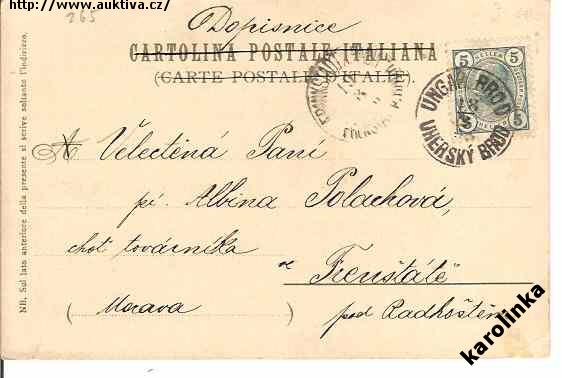 http://www.auktiva.cz/
265
Dopisnice
CARTOLINA POSTALE ITALIANA
(CARTE POSTALE D'ITALIE)
5 5
UNGAR. BROD
UHERSKÝ BROD
NB. Sul lato anteriore della presente si scrive soltanto l'indirizzo.
A Velectěná Paní
pí. Albina Polachová,
choť továrníka
ve Frenštátě
(Morava) pod Radhoštěm
karolinka